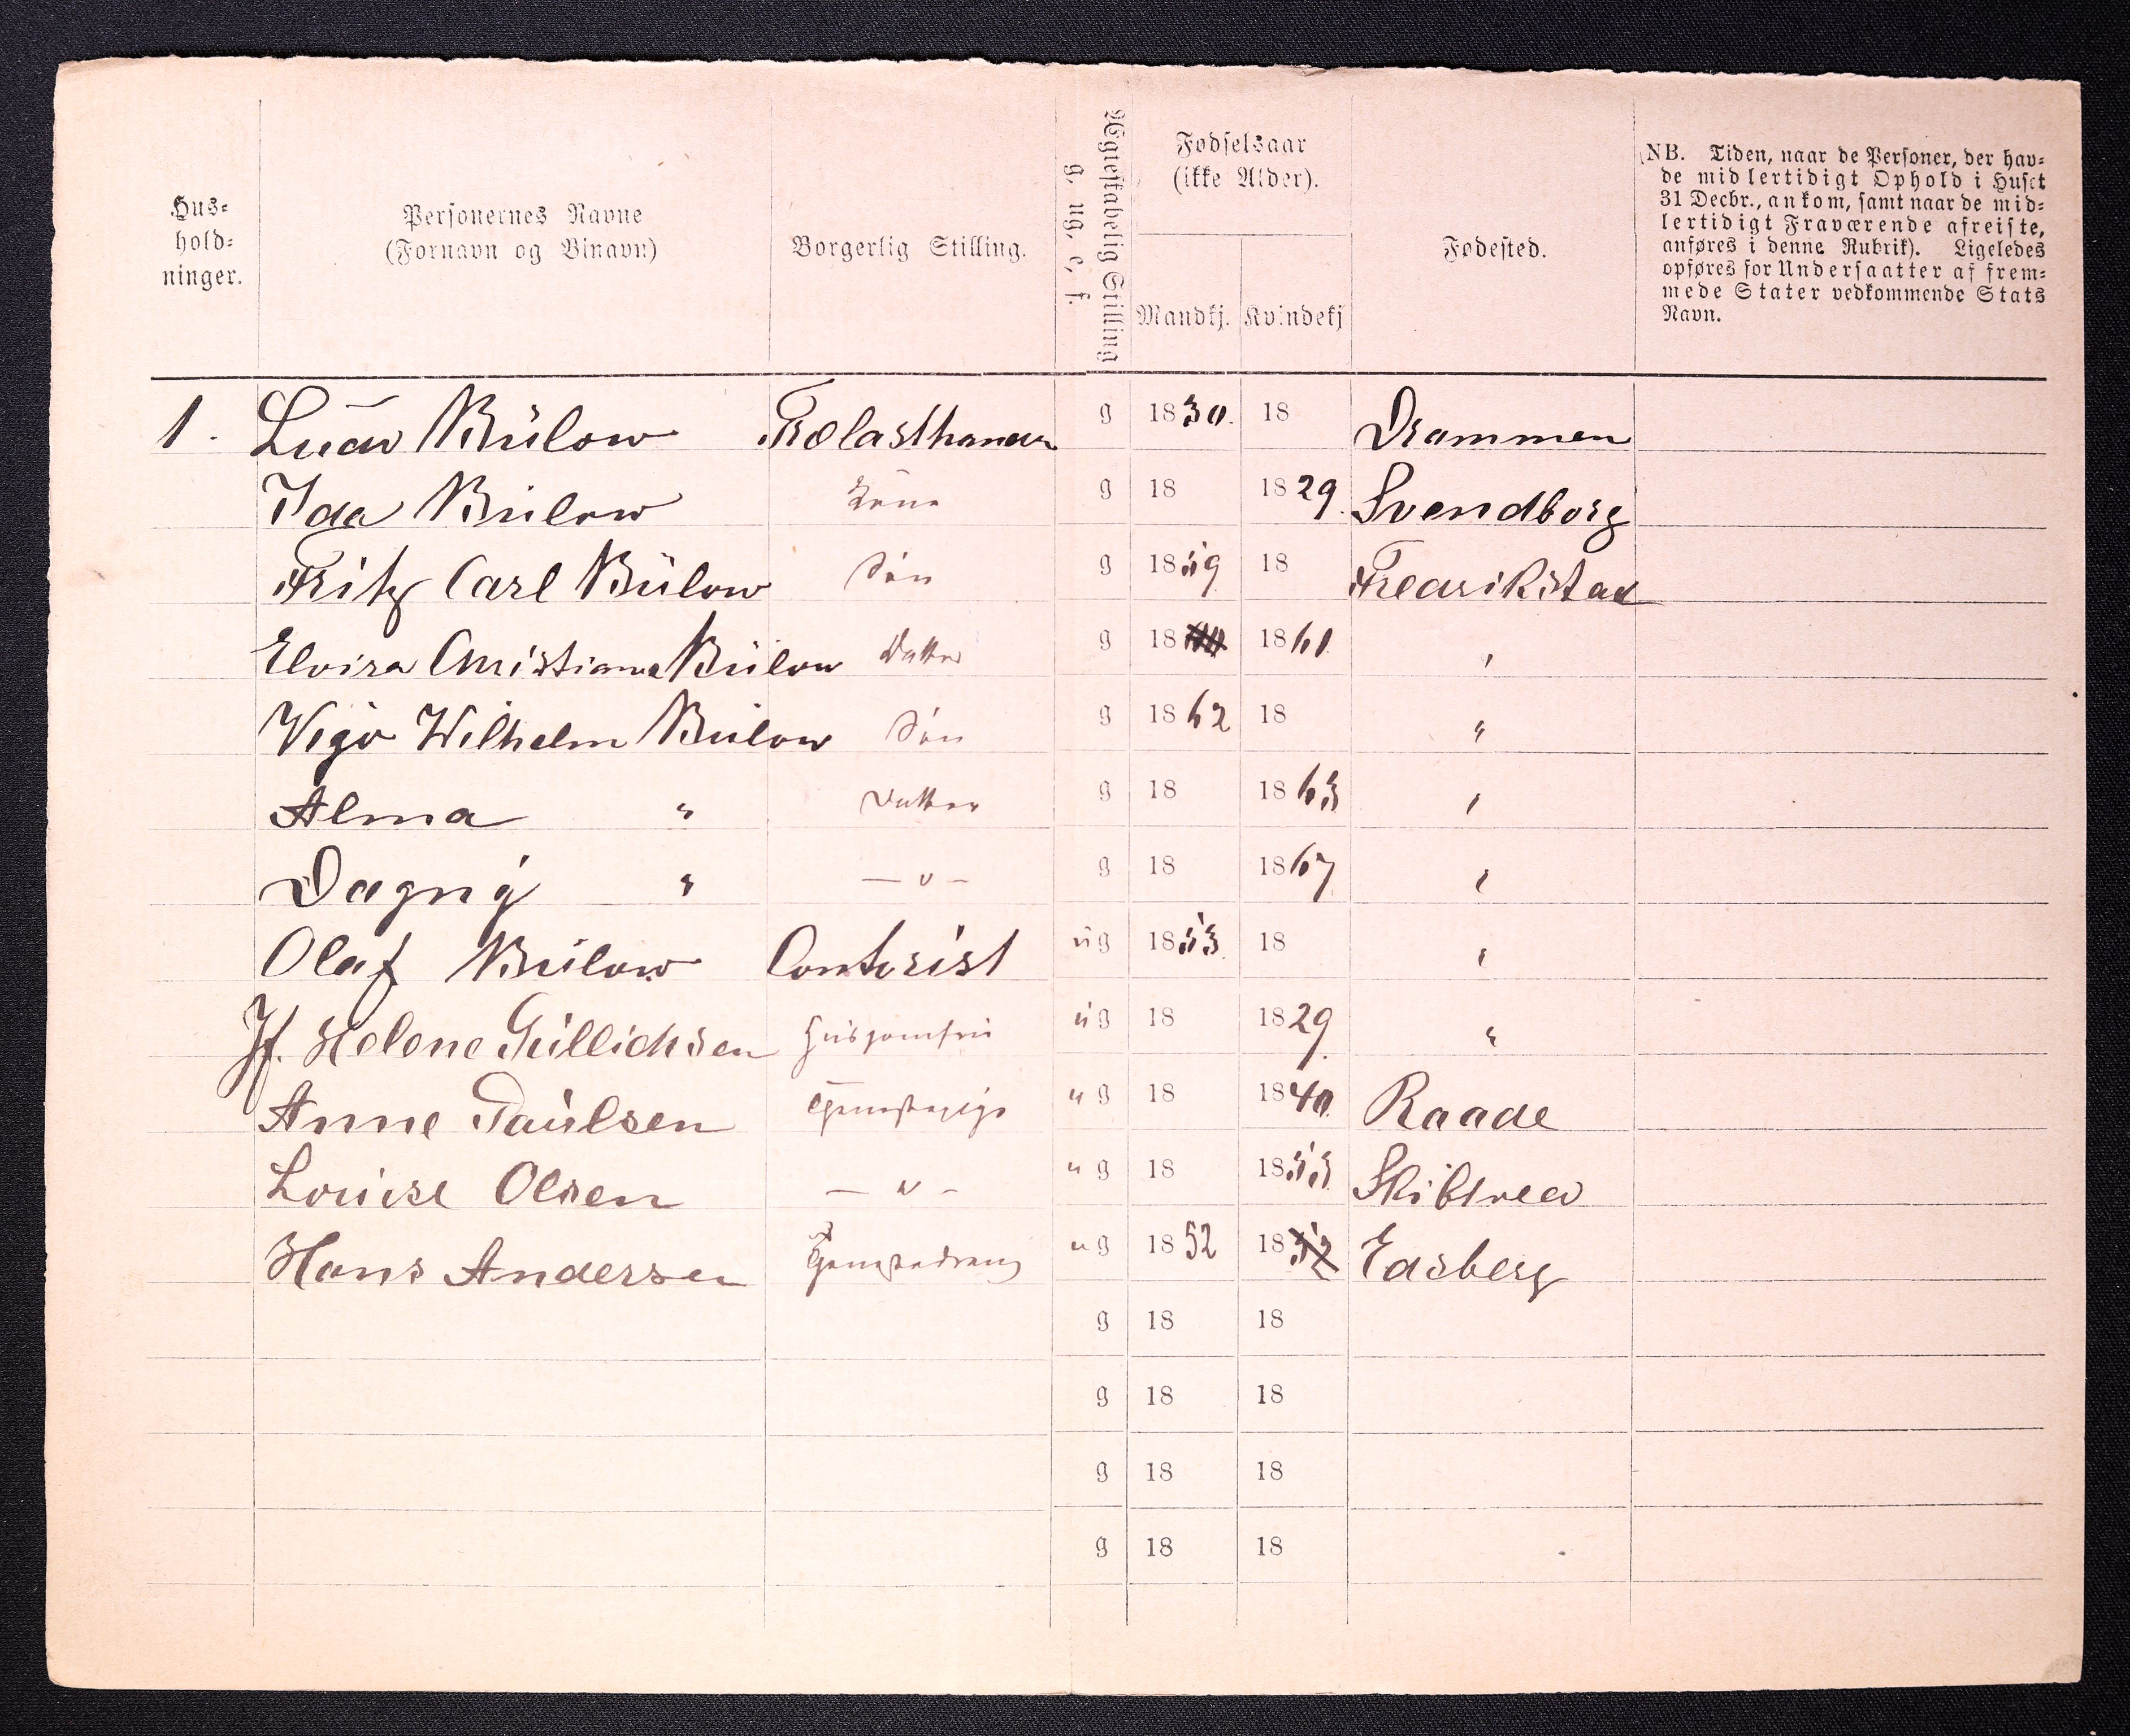 Hus-
hold-
ninger.
Personernes Navne
(Fornavn og Binavn)
Borgerlig Stilling.
Ægteskabelig Stilling
g, ug, e, f.
Fødselsaar
(ikke Alder).
Mandkj. Kvindekj
Fødested.
NB. Tiden, naar de Personer, der hav-
de midlertidigt Ophold i Huset
31 Decbr., ankom, samt naar de mid-
lertidigt Fraværende afreiste,
anføres i denne Rubrik). Ligeledes
opføres for Undersaatter af frem-
mede Stater vedkommende Stats
Navn.
1. Ludv Bülow Trælasthandler g 1830. 18 Drammen
Ida Bülow Kone g 18 1829. Svendborg
Fritz Carl Bülow Søn g 1859 18 Fredrikstad
Elvira Christiane Bülow Datter g 18 1861 "
Vigo Wilhelm Bülow Søn g 1862 18 "
Alma " Datter g 18 1863 "
Dagny " — " — g 18 1867 "
Olaf Bülow Contorist ug 1853 18 "
Jf. Helene Güllichsen Huusjomfru ug 18 1829. "
Anne Paulsen Tjenestepige ug 18 1840 Raade
Louise Olsen — " — ug 18 1853 Skibtved
Hans Andersen Tjenestedreng ug 1852 1852 Edsberg
g 18 18
g 18 18
g 18 18
g 18 18